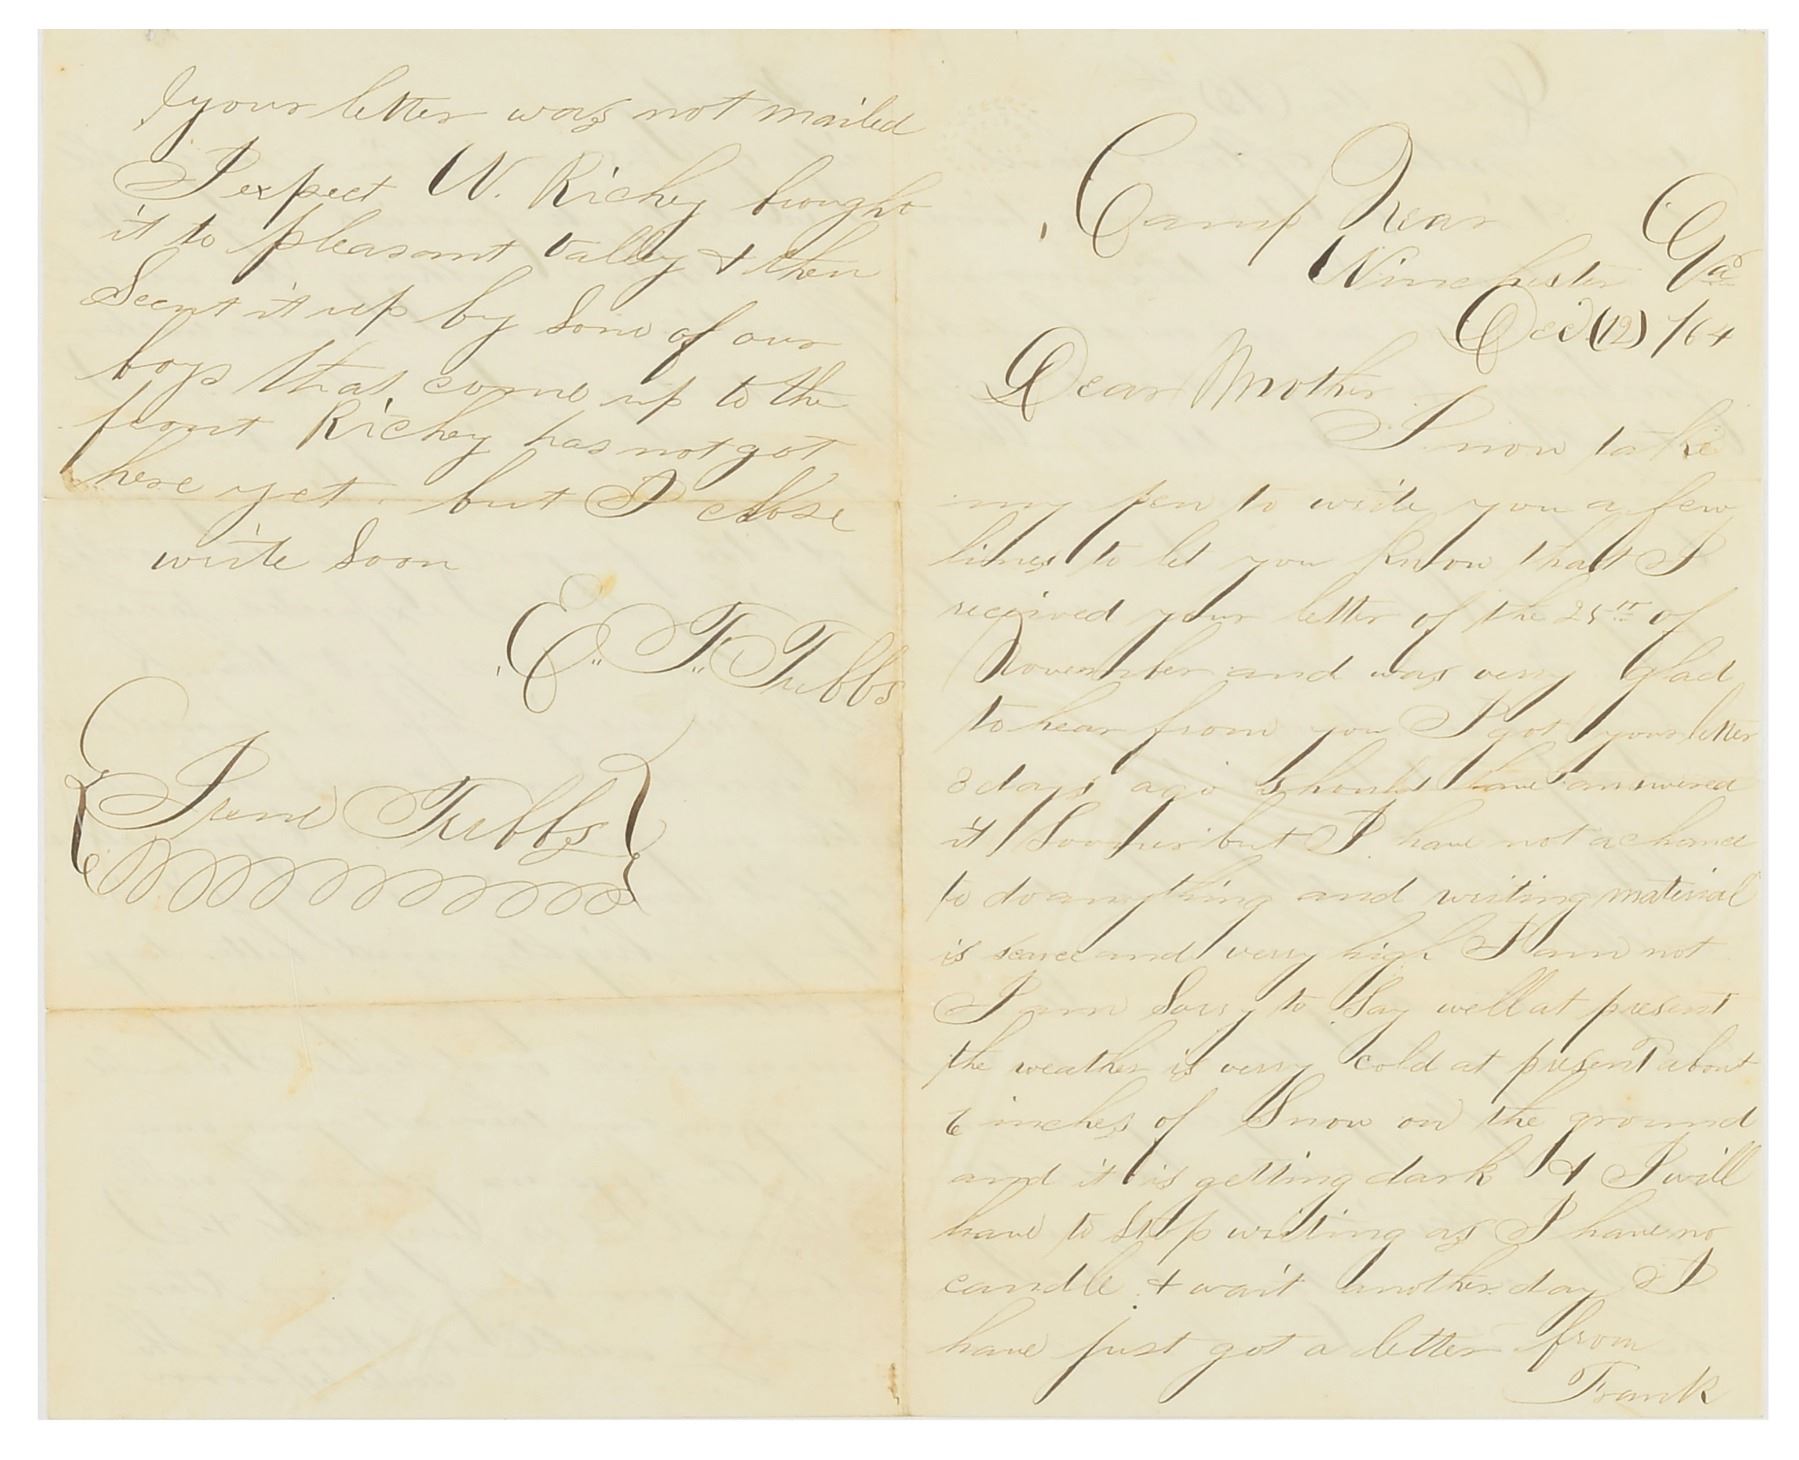 Camp Near
Winchester Va
Dec (12) /64
Dear Mother
I now take
my pen to write you a few
lines to let you know that I
received your letter of the 25th of
November and was verry glad
to hear from you I got your letter
3 days ago should have answered
it Sooner but I have not a chance
to do anything and writing material
is scarce and verry high I am not
I am Sorry to Say well at present
the weather is verry cold at present about
6 inches of Snow on the ground
and it is getting dark & I will
have to Stop writing as I have no
candle & wait another day I
have just got a letter from
Frank
your letter was not mailed
I expect W. Richey brought
it to pleasant valley & then
Scent it up by Some of our
boys that come up to the
front Richey has not got
here yet. but I close
write Soon
E. F. Tubbs
Irene Tubbs